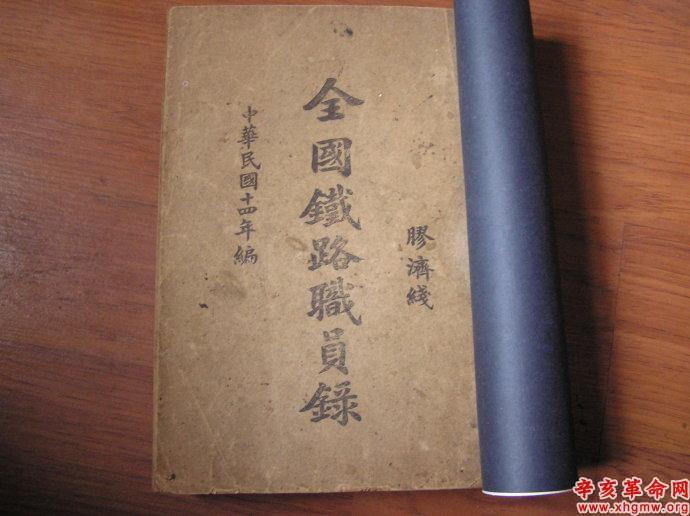 膠濟綫
全國鐵路職員錄
中華民國十四年編
辛亥革命网
www.xhgmw.org